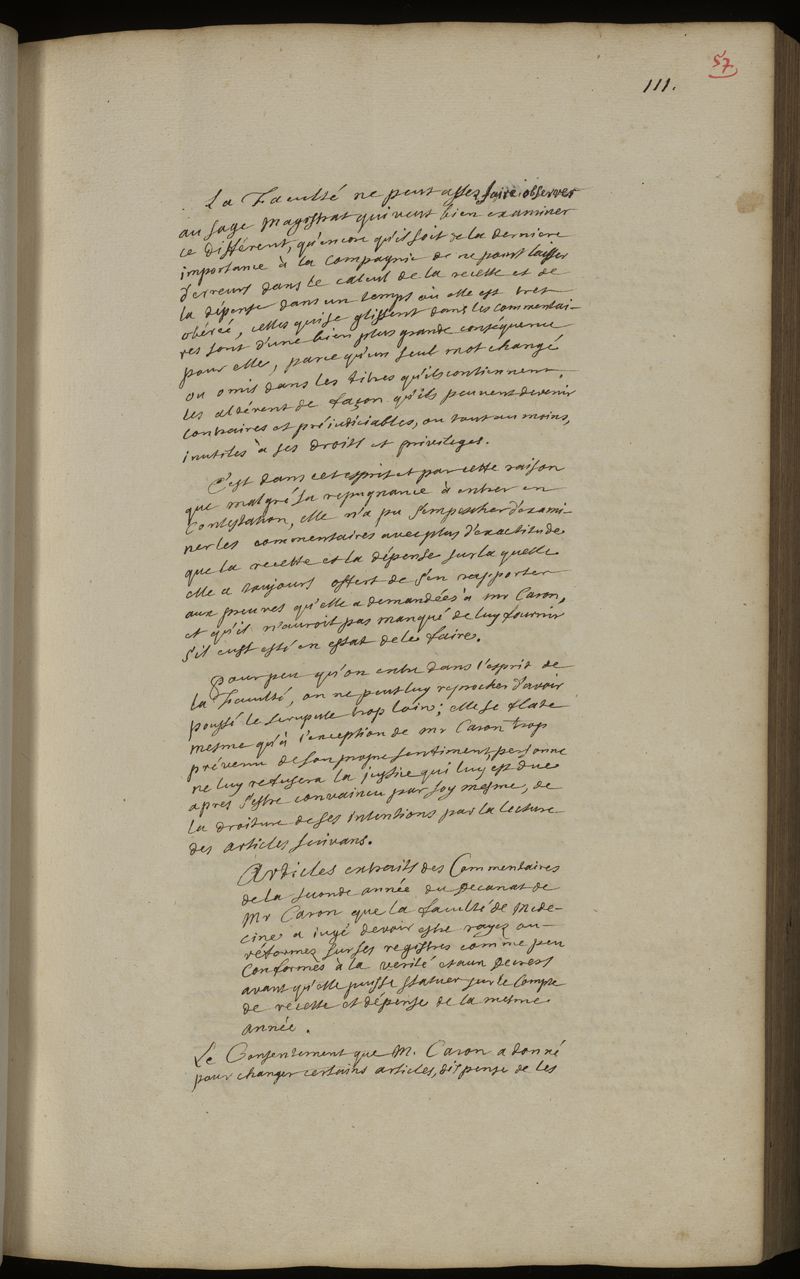 57
111.
La Faculté ne peut assez faire observer
au sage Magistrat qui veut bien examiner
ce différent, qu'encore qu'il soit de la derniere
importance à la Compagnie de ne point laisser
d'erreurs dans le calcul de la recette et de
la dépense dans un temps où elle est tres
obéréé, celles qui se glissent dans les commentai-
res sont d'une bien plus grande conséquence
pour elle, parce qu'un seul mot changé
ou omis dans les titres qu'ils contiennent,
les altérent de façon qu'ils peuvent devenir
contraires et préjudiciables, ou tout au moins,
inutiles à ses droits et privileges.
C'est dans cet esprit et par cette raison
que malgré sa repugnance à entrer en
Contestation, elle n'a pu s'empescher d'exami-
ner les commentaires avec plus d'exactitude
que la recette et la dépense sur la quelle
elle a toujours offert de s'en rapporter
aux preuves qu'elle a demandées à mr Caron,
et qu'il n'auroit pas manqué de luy fournir
s'il eust esté en estat de le faire.
Pour peu qu'on entre dans l'esprit de
la Faculté, on ne peut luy reprocher d'avoir
poussé le scrupule trop loin; elle se flate
mesme qu'à l'exception de mr Caron trop
prévenu de son propre sentiment, personne
ne luy refusera la justice qui luy est due
apres s'estre convaincu par soy mesme, de
la droiture de ses intentions par la lecture
des articles suivans.
Articles extraits des Commentaires
de la seconde année du Decanat de
Mr Caron que la faculté de Mede-
cine a jugé devoir estre rayez ou
réformez sur ses registres comme peu
Conformes à la verité et aux Decrets
avant qu'elle puisse statuer sur le Compte
de recette et dépense de la mesme
année.
Le Consentement que M. Caron a donné
pour changer certains articles, dispense de les